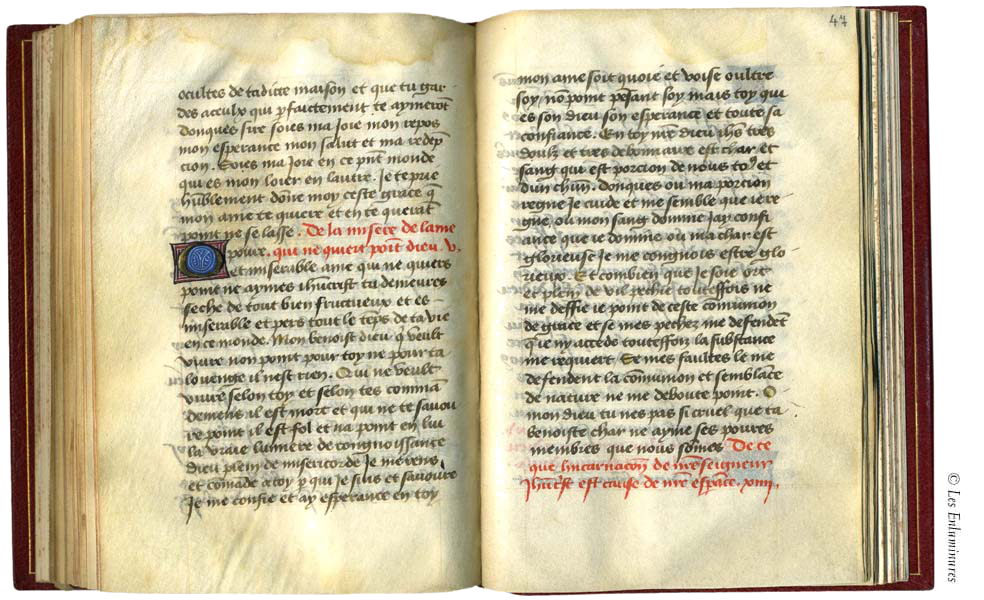 ocultes de ta dicte maison et que tu gar
des aceulx qui pfaictement te aymerõt
donques sire soies ma Joie mon repos
mon esperance mon salut et ma redẽp
cion. Soies ma Joie en ce pñt monde
qui es mon loier en lautre. Je te prie
hũblement dõne moy ceste grace q̃
mon ame te quiere et en te querãt
point ne se lasse. De la misere de lame
O poure. qui ne quiert poĩt dieu. v.
et miserable ame qui ne quiers
point ne aymes ihũcrist tu demeures
seche de tout bien fructueux et es
miserable et pers tout le tẽps de ta vie
en ce monde. Mon benoist dieu q̃ veult
vivre non point pour toy ne pour ta
louenge il nest rien. Qui ne veult
vivre selon toy et selon tes commã
demens il est mort et qui ne te savou
re point il est fol et na point en lui
la vraie lumiere de congnoissance
dieu plein de misericorde Je me rens
et comãde a toy p qui je suis et savoure
Je me confie et ay esperance en toy
47
mon ame soit quoie et voise oultre
soy, nõ point pẽsant soy mais toy qui
es son dieu son esperance et toute sa
confiance. En toy nr̃e dieu ihs tres
doulz et tres debonnaire est char et
sang qui est porcion de nous to9 et
dun chũn. donques ou ma porcion
regne Je cuide et me semble que ie re
gne, ou mon sang domine Jay confi
ance que ie domine ou ma char est
glorieuse Je me congnois estre glo
rieux. Et combien que Je soie ort
et plein de vil pechie toutesfois ne
me deffie ie point de ceste cõmunion
de grace et se mes pechez me defendent
que ny accede toutesfoiz la substance
me requiert. Se mes faultes le me
defendent la cõmunion et semblãce
de nature ne me deboute point. O
mon dieu tu nes pas si cruel que ta
benoiste char ne ayme ses poures
membres que nous sõmes De ce
que lincarnacõn de nr̃e seigneur
Jhũcrist est cause de nr̃e espãce. xviij.
© Les Enluminures